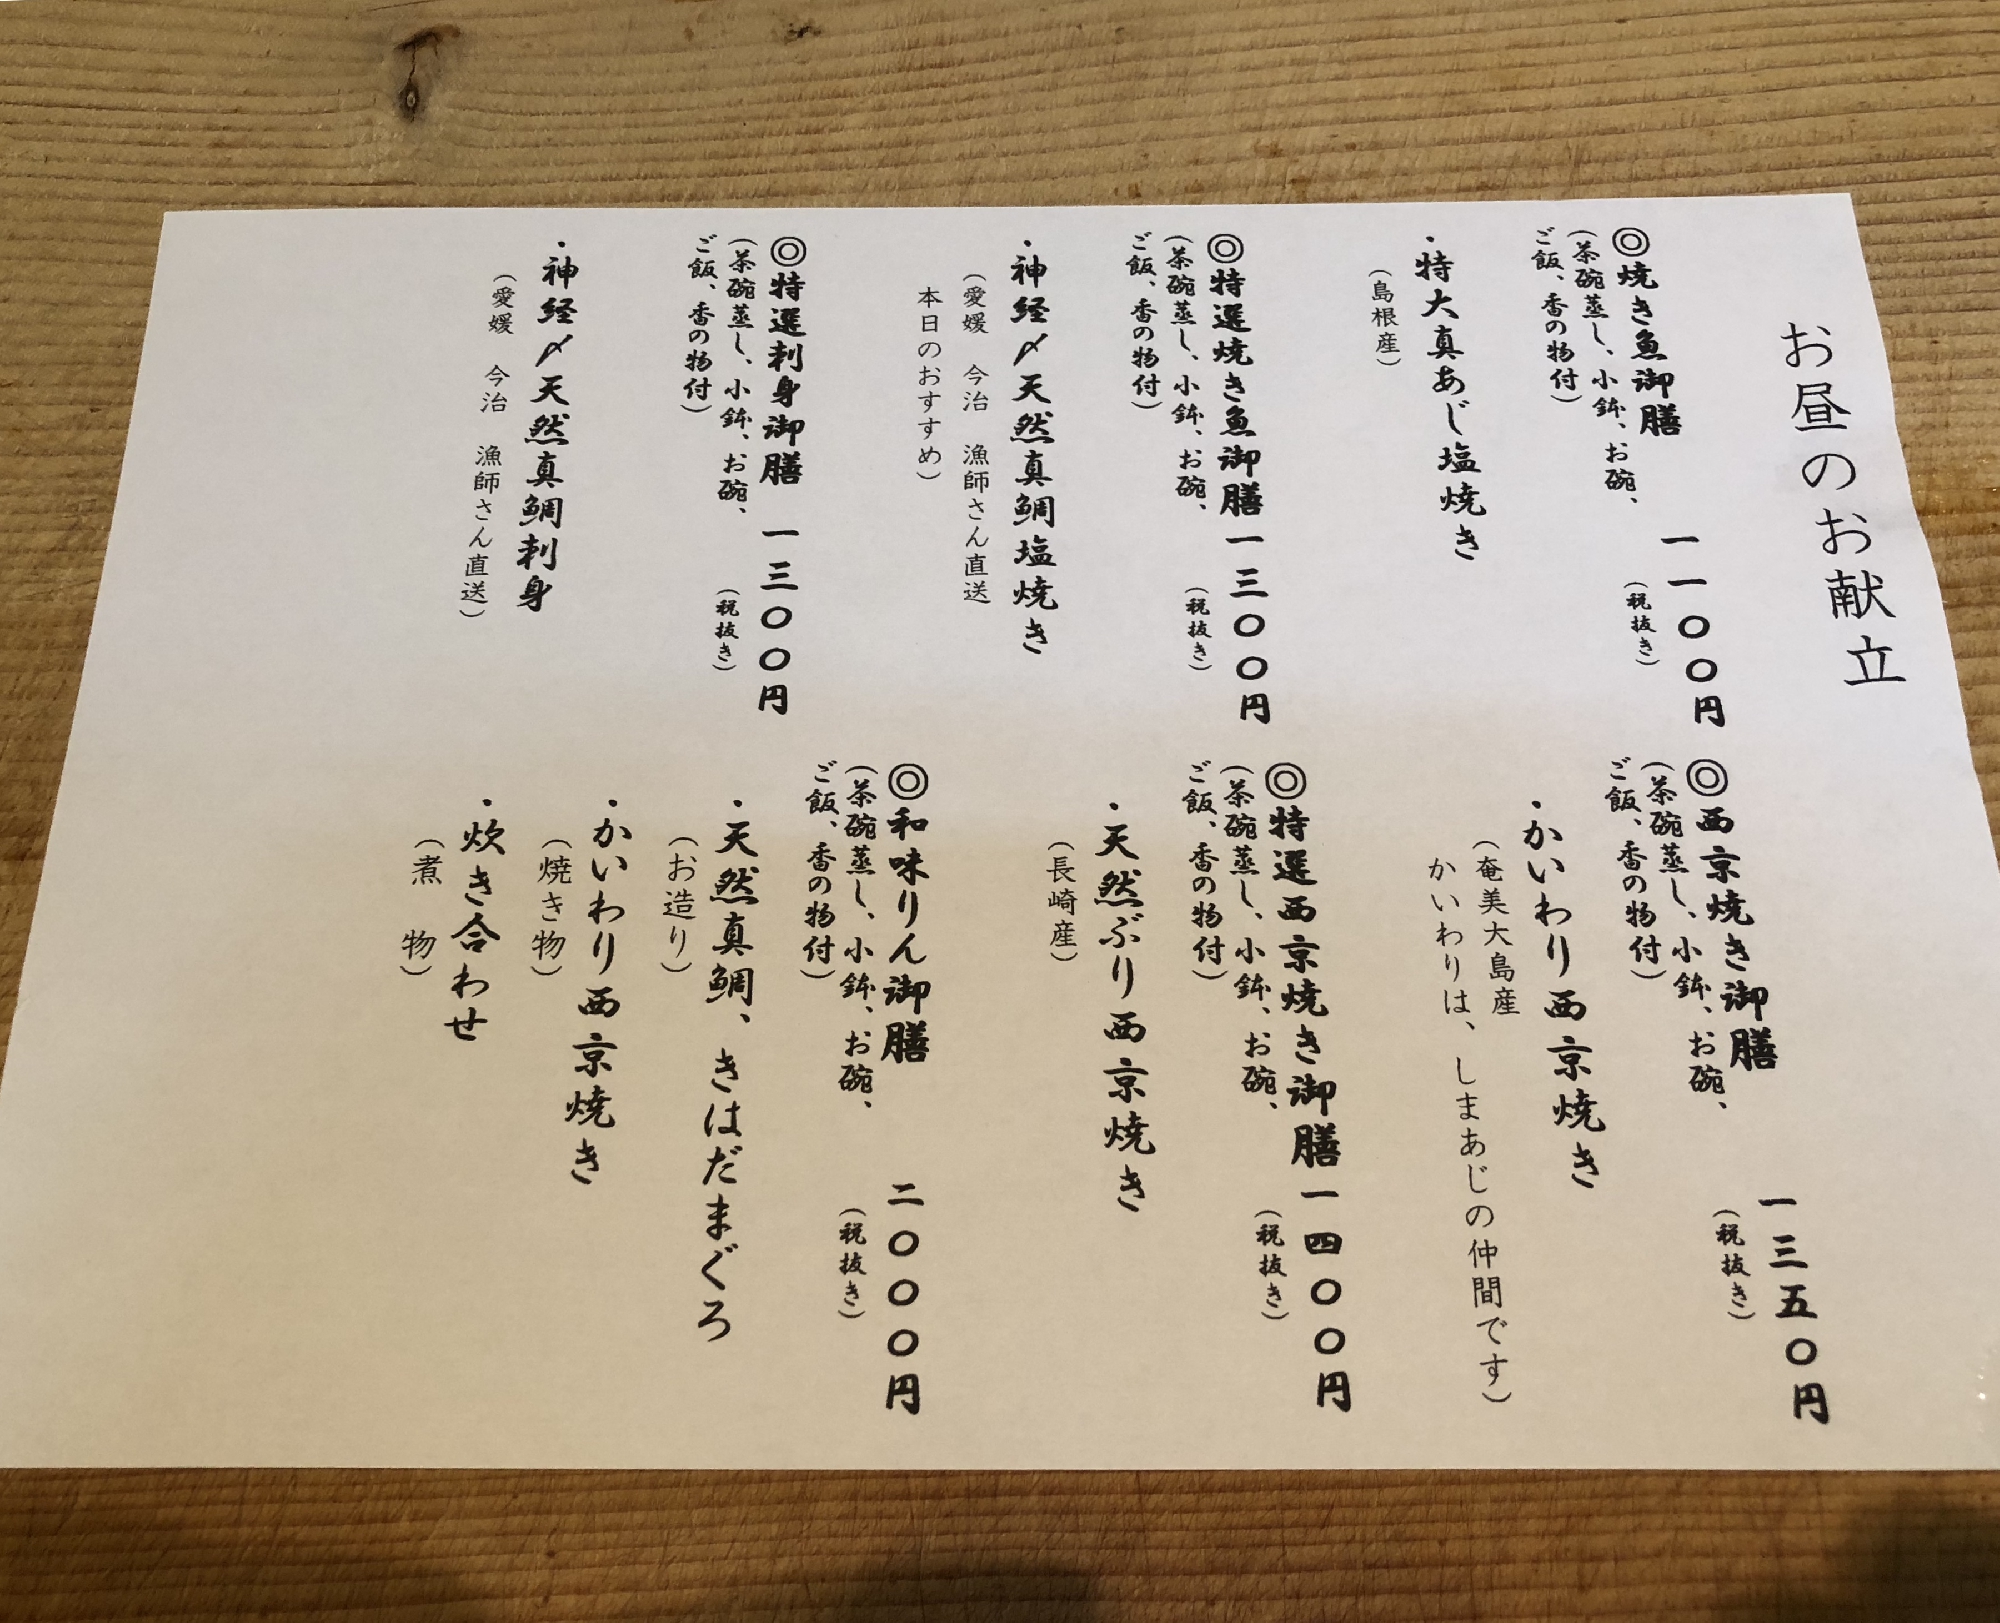 お昼のお献立
◎焼き魚御膳 一一〇〇円
(茶碗蒸し、小鉢、お碗、
ご飯、香の物付)
(税抜き)
・特大真あじ塩焼き
(島根産)
◎特選焼き魚御膳 一三〇〇円
(茶碗蒸し、小鉢、お碗、
ご飯、香の物付)
(税抜き)
・神経〆天然真鯛塩焼き
(愛媛 今治 漁師さん直送
本日のおすすめ)
◎特選刺身御膳 一三〇〇円
(茶碗蒸し、小鉢、お碗、
ご飯、香の物付)
(税抜き)
・神経〆天然真鯛刺身
(愛媛 今治 漁師さん直送)
◎西京焼き御膳 一三五〇円
(茶碗蒸し、小鉢、お碗、
ご飯、香の物付)
(税抜き)
・かいわり西京焼き
(奄美大島産
かいわりは、しまあじの仲間です)
◎特選西京焼き御膳 一四〇〇円
(茶碗蒸し、小鉢、お碗、
ご飯、香の物付)
(税抜き)
・天然ぶり西京焼き
(長崎産)
◎和味りん御膳 二〇〇〇円
(茶碗蒸し、小鉢、お碗、
ご飯、香の物付)
(税抜き)
・天然真鯛、きはだまぐろ
(お造り)
・かいわり西京焼き
(焼き物)
・炊き合わせ
(煮 物)